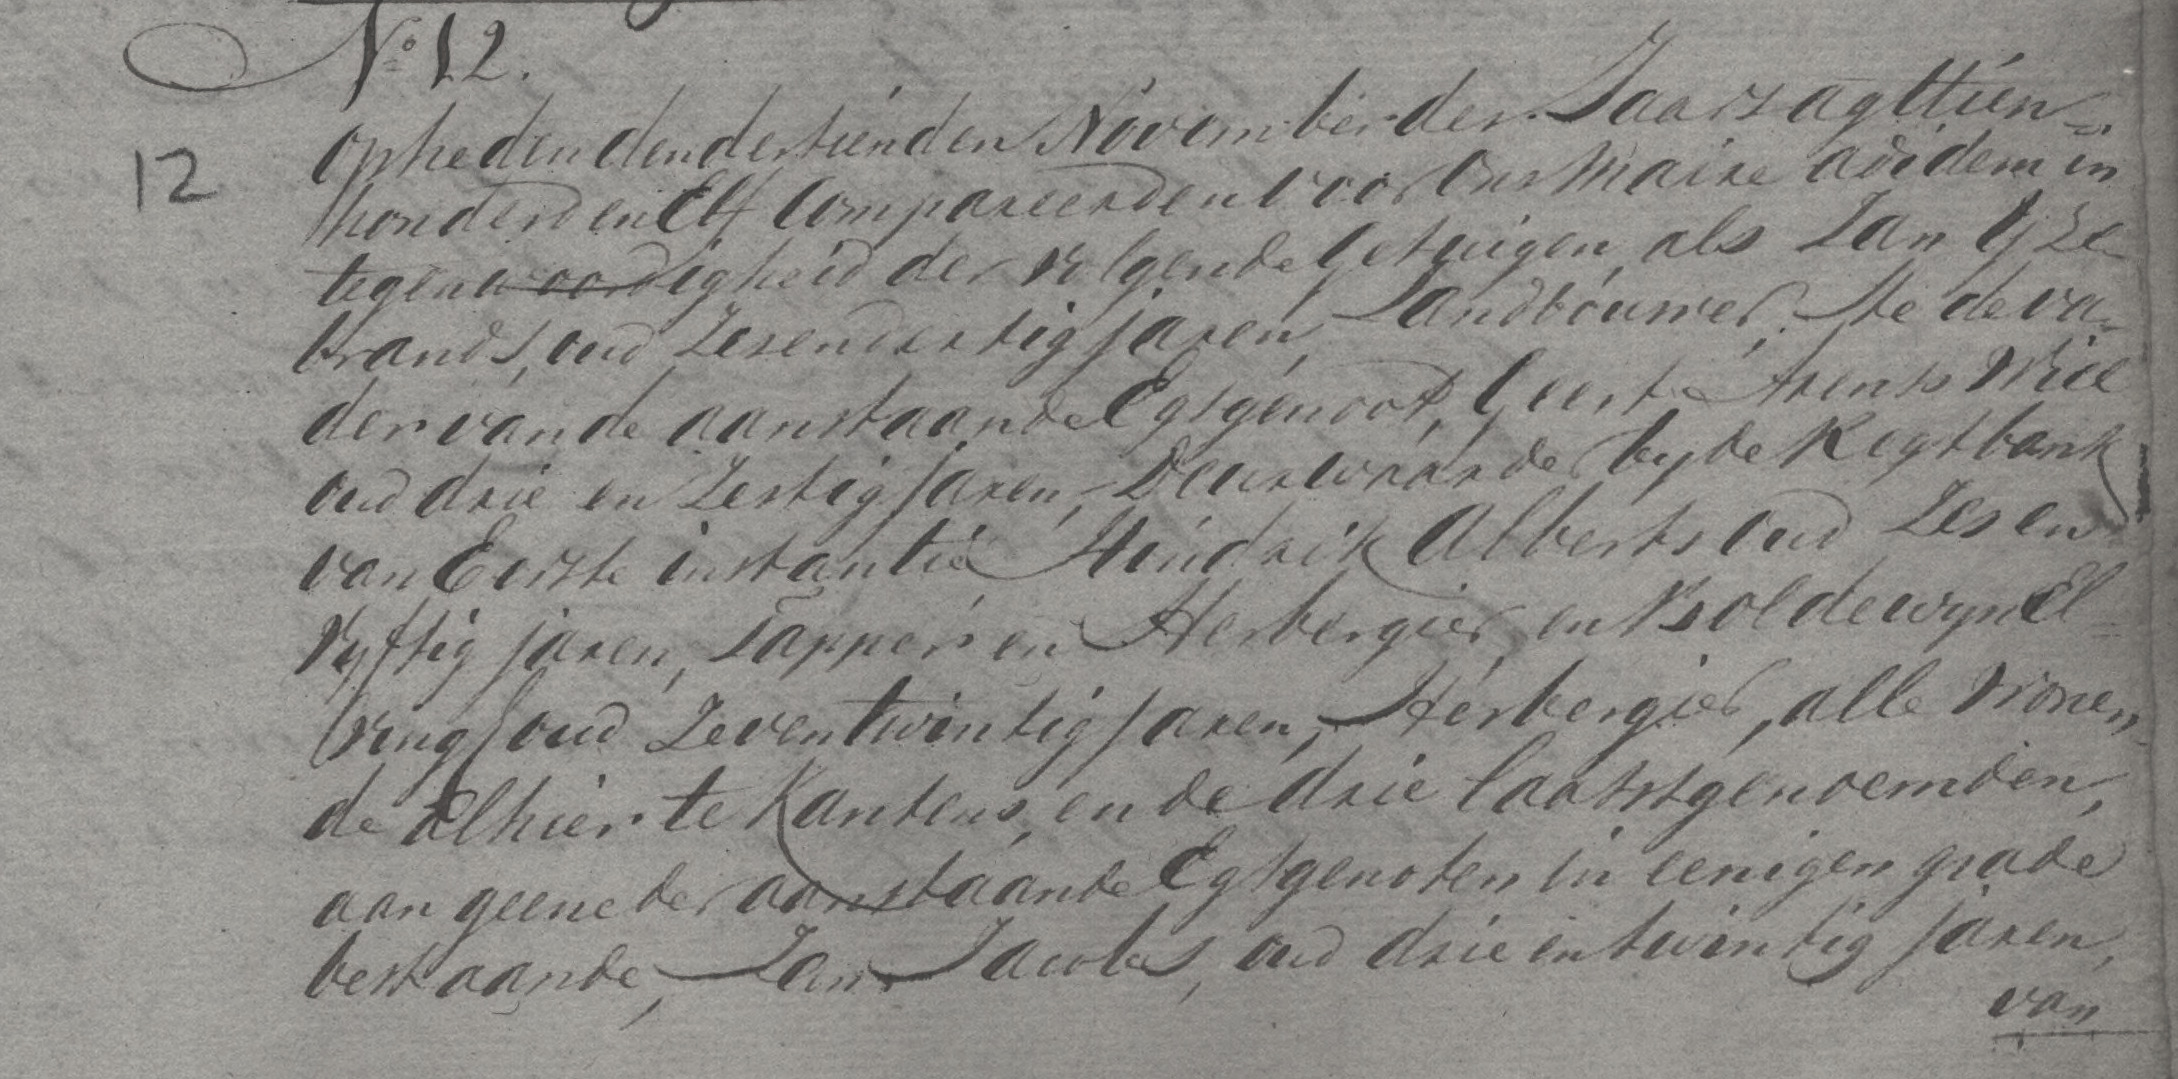 No 12.
12
op heden den dertienden November der Jaars agttien=
honderd en Elf Compareerden voor ons Maire
tegenwoordigheid der volgende getuigen, als Jan
brands, oud Zesendertig jaren, Landbouwer,
der van de aanstaande Egtgenoot, Geert
oud drie en Zestig jaren, Deurwaarder by de Regtbank
van Eerste instantie Hindrik Alberts oud Zes en
vyftig jaren, Tapper en Herbergier, en Boldewyn El=
ring oud Zeven twintig jaren, Herbergier, alle wonen=
de alhier te Kantens, en de drie laatstgenoemden,
aan geene der aanstaande Egtgenoten in eenigen grade
bestaande, Jan Jacobs, oud drie en twintig jaren,
van